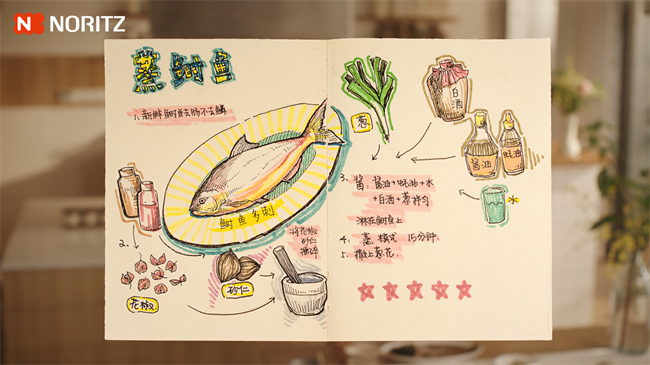 NORITZ
蒸鲥鱼
1. 新鲜鲥鱼去肠不去鳞
葱
白酒
酱油
蚝油
水
鲥鱼多刺
2.
花椒
砂仁
将花椒
砂仁
捣碎
3. 酱 酱油+蚝油+水
+白酒+葱拌匀
淋在鲥鱼上
4. 蒸 模式 15分钟.
5. 撒上葱花.